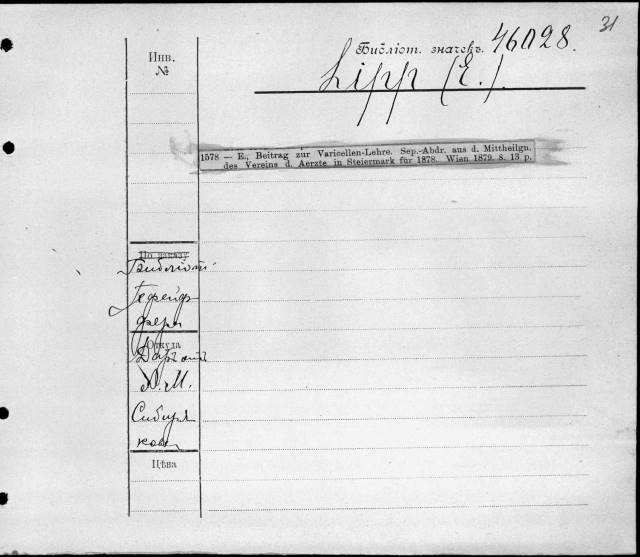 31
Библіот. значекъ. 46028.
Инв.
№
Lipp (E.).
1578 — E., Beitrag zur Varicellen-Lehre. Sep.-Abdr. aus d. Mittheilgn.
des Vereins d. Aerzte in Steiermark für 1878. Wien 1879. 8. 13 p.
По заказу
Библіот.
Гефейф
фера
Откуда
Даръ отъ
А. М.
Сибиря
кова
Цѣна